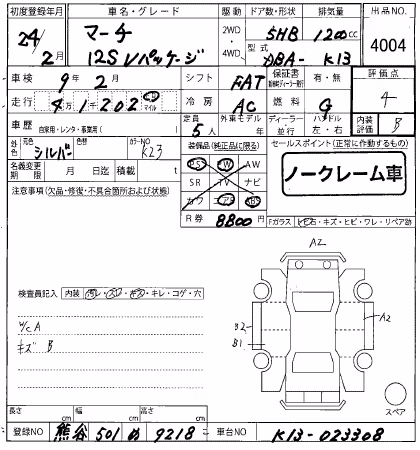 初度登録年月 車名・グレード 駆動 ドア数・形状 排気量 出品NO.
24/2月 マーチ 12S Vパッケージ 2WD 4WD 5HB 1200cc 4004
型式 DBA-K13
車検 9年2月 シフト FAT 保証書 有・無 評価点
走行 4万1202 km マイル 冷房 AC 燃料 G 4
車歴 自家用・レンタ・事業用( ) 定員 5人 外車モデル ディーラー 並行 ハンドル 左・右 内装評価 B
外色 元色 シルバー 色替 カラーNO K23 装備品(純正品に限る) セールスポイント(正常に作動するもの)
PS PW AW
名義変更期限 月 日迄 積載 t SR TV ナビ ノークレーム車
注意事項(欠品・修復・不具合箇所および状態) カワ エアB ABS
R券 8800円 Fガラス ヒビ石・キズ・ヒビ・ワレ・リペア跡
A2
検査員記入 内装 汚レ・スレ・キズ・キレ・コゲ・穴
A2
B2
B1
キズ B
スペア
長さ cm 幅 cm 高さ cm
登録NO 熊谷 501 め 9218 車台NO K13-023308